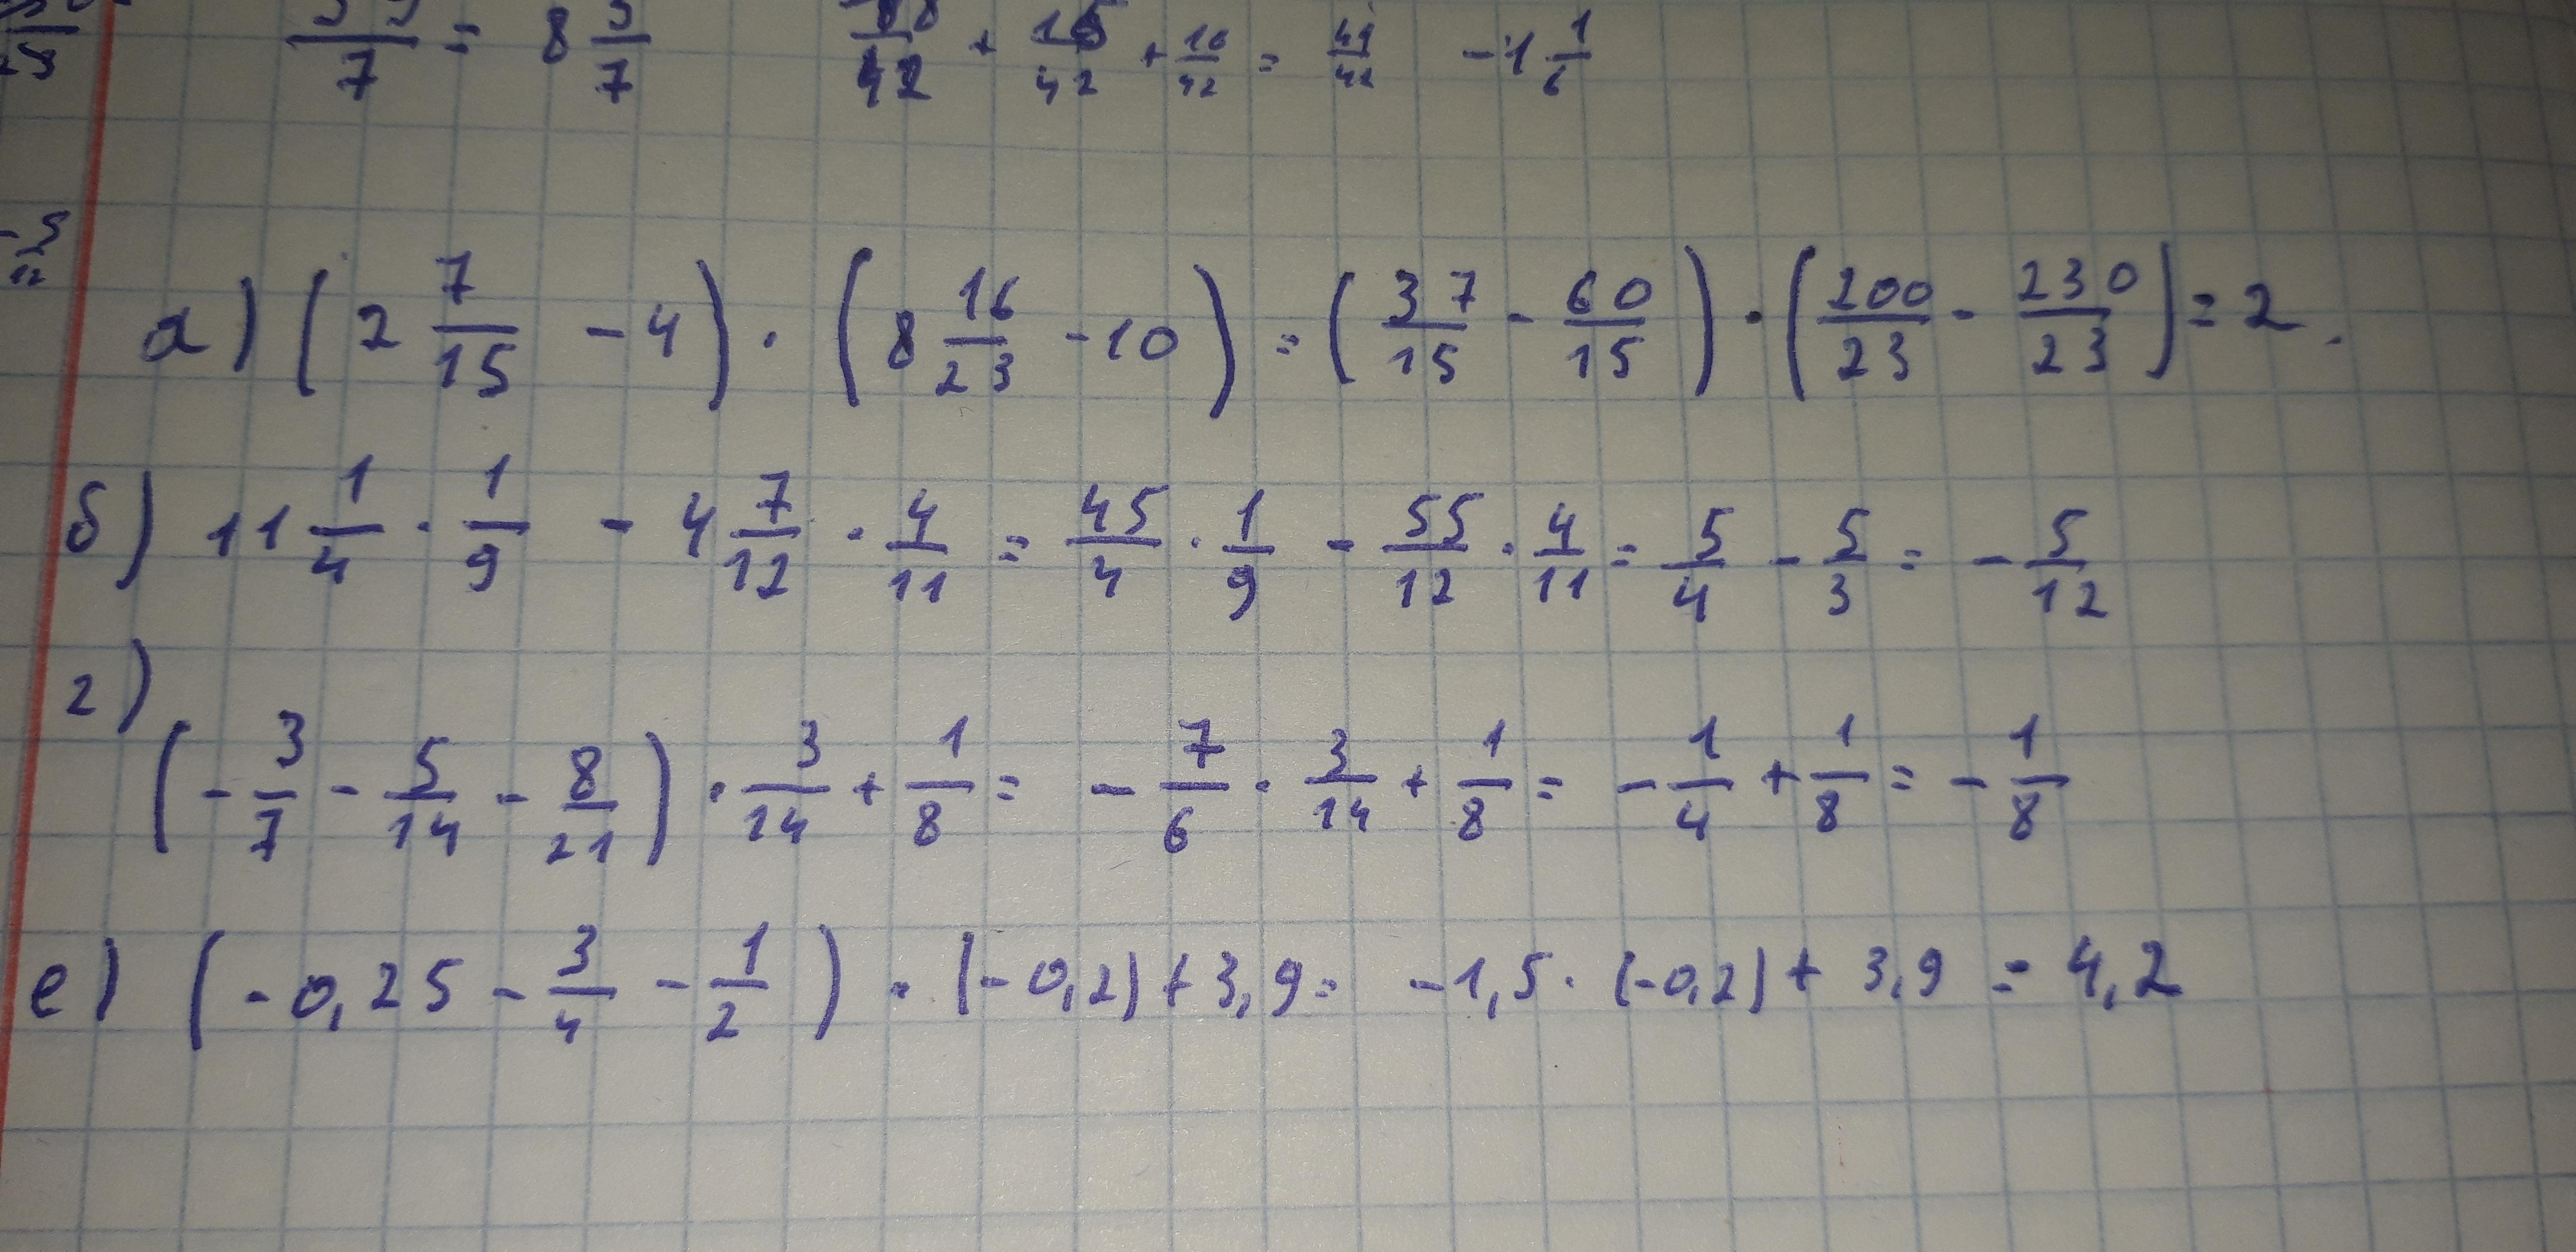 /7 = 8 5/7 /42 + 16/42 + 16/42 = 49/42 -1 1/6
-5/12
а) (2 7/15 - 4) · (8 16/23 - 10) = (37/15 - 60/15) · (200/23 - 230/23) = 2.
б) 11 1/4 · 1/9 - 4 7/12 · 4/11 = 45/4 · 1/9 - 55/12 · 4/11 = 5/4 - 5/3 = - 5/12
г)
(- 3/7 - 5/14 - 8/21) · 3/14 + 1/8 = - 7/6 · 3/14 + 1/8 = - 1/4 + 1/8 = - 1/8
е) (-0,25 - 3/4 - 1/2) · (-0,2) + 3,9 = -1,5 · (-0,2) + 3,9 = 4,2